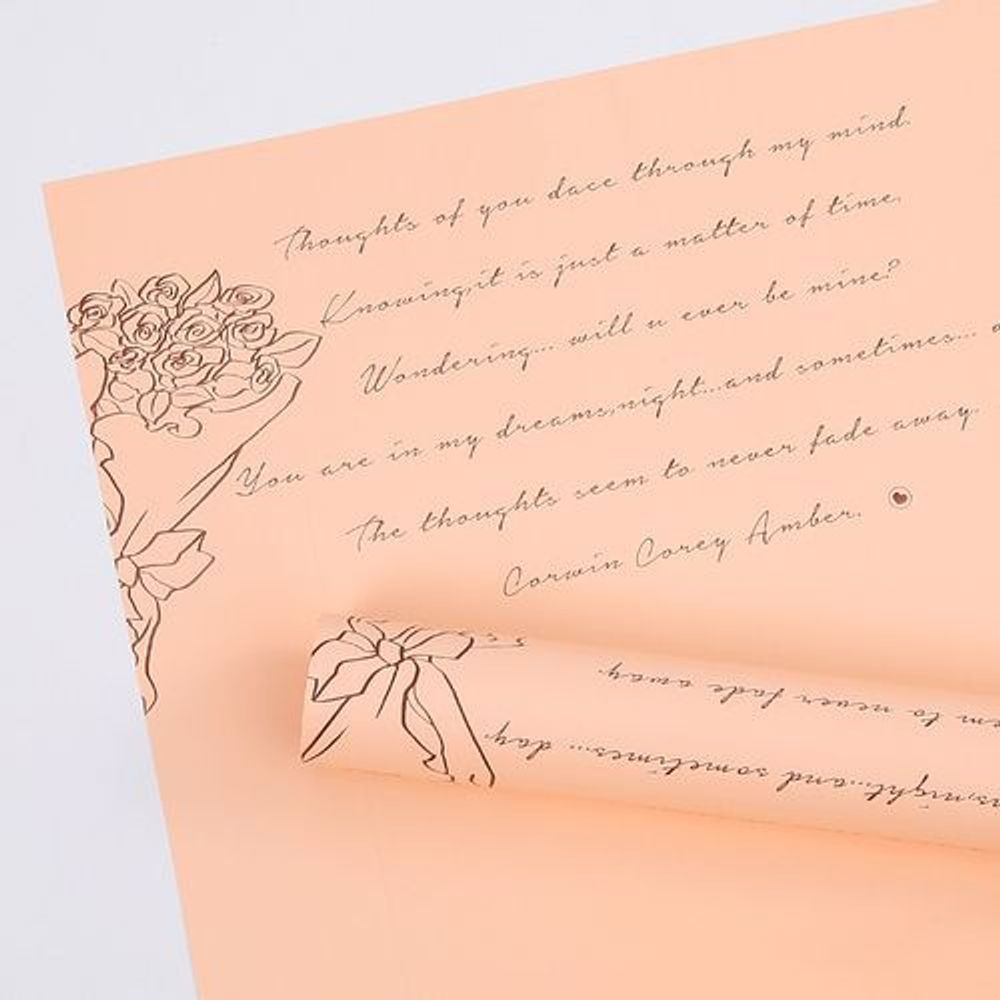 Thoughts of you dace through my mind.
Knowing,it is just a matter of time.
Wondering... will u ever be mine?
You are in my dreams,night...and sometimes...
The thoughts seem to never fade away.
Corwin Corey Amber.
to never fade away.
night...and sometimes... day.